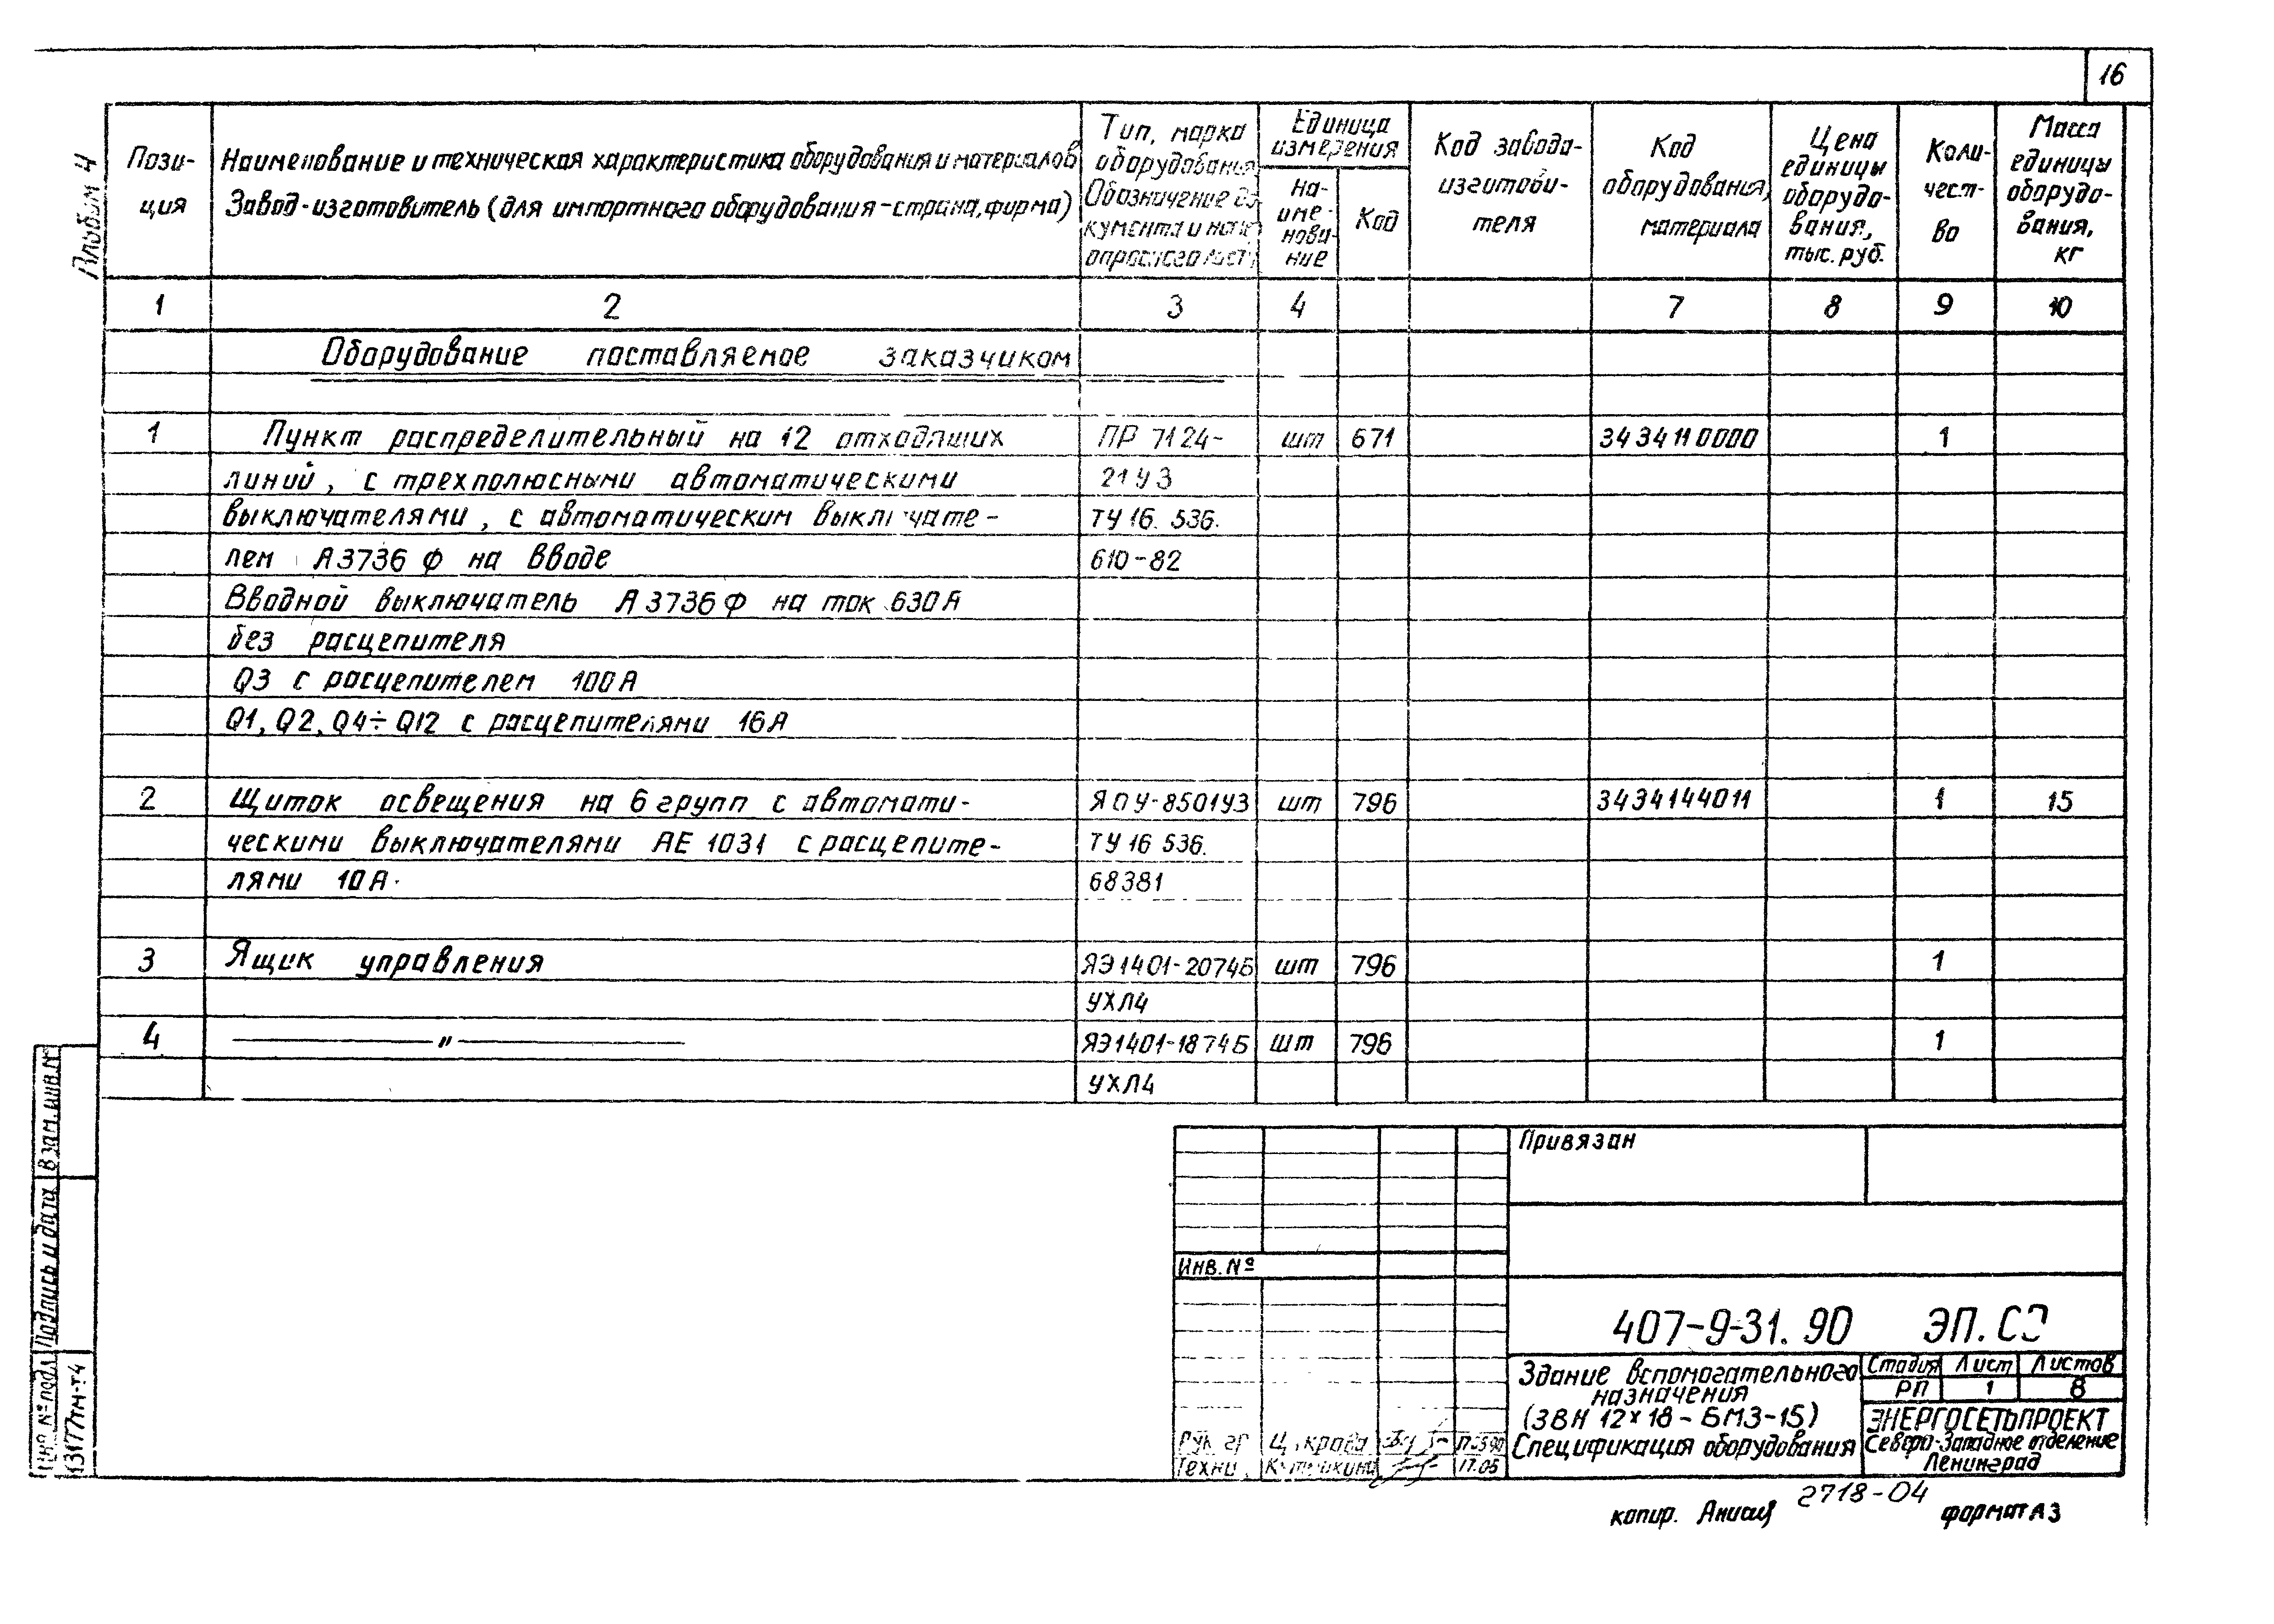 16
Альбом 4
Пози-
ция
Наименование и техническая характеристика оборудования и материалов
Завод-изготовитель (для импортного оборудования-страна, фирма)
Тип, марка
оборудования
Обозначение до
кумента и
опросного
Единица
измерения
На-
име-
нова-
ние
Код
Код завода-
изготови-
теля
Код
оборудования,
материала
Цена
единицы
оборудо-
вания,
тыс. руб.
Коли-
чест-
во
Масса
единицы
оборудо-
вания,
кг
1 2 3 4 7 8 9 10
Оборудование поставляемое заказчиком
1 Пункт распределительный на 12 отходящих ПР 7124- шт 671 3434110000 1
линий, с трехполюсными автоматическими 21У3
выключателями, с автоматическим выключате- ТУ 16. 536.
лем А3736 Ф на вводе 610-82
Вводной выключатель А 3736 Ф на ток 630А
без расцепителя
Q3 с расцепителем 100А
Q1, Q2, Q4÷Q12 с расцепителями 16А
2 Щиток освещения на 6 групп с автомати- ЯОУ-8501У3 шт 796 3434144011 1 15
ческими выключателями АЕ 1031 с расцепите- ТУ 16 536.
лями 10А. 68381
3 Ящик управления ЯЭ1401-2074Б шт 796 1
УХЛ4
4 —〃— ЯЭ1401-1874Б шт 796 1
УХЛ4
Взам. инв. №
Подпись и дата
Инв. № подл.
13177тм-т4
Привязан
Инв. №
407-9-31. 90 ЭП. СО
Здание вспомогательного
назначения
(ЗВН 12×18-БМЗ-15)
Спецификация оборудования
Стадия Лист Листов
РП 1 8
ЭНЕРГОСЕТЬПРОЕКТ
Северо-Западное отделение
Ленинград
Рук. гр
Техни
17.05
копир. 2718-04 формат А3